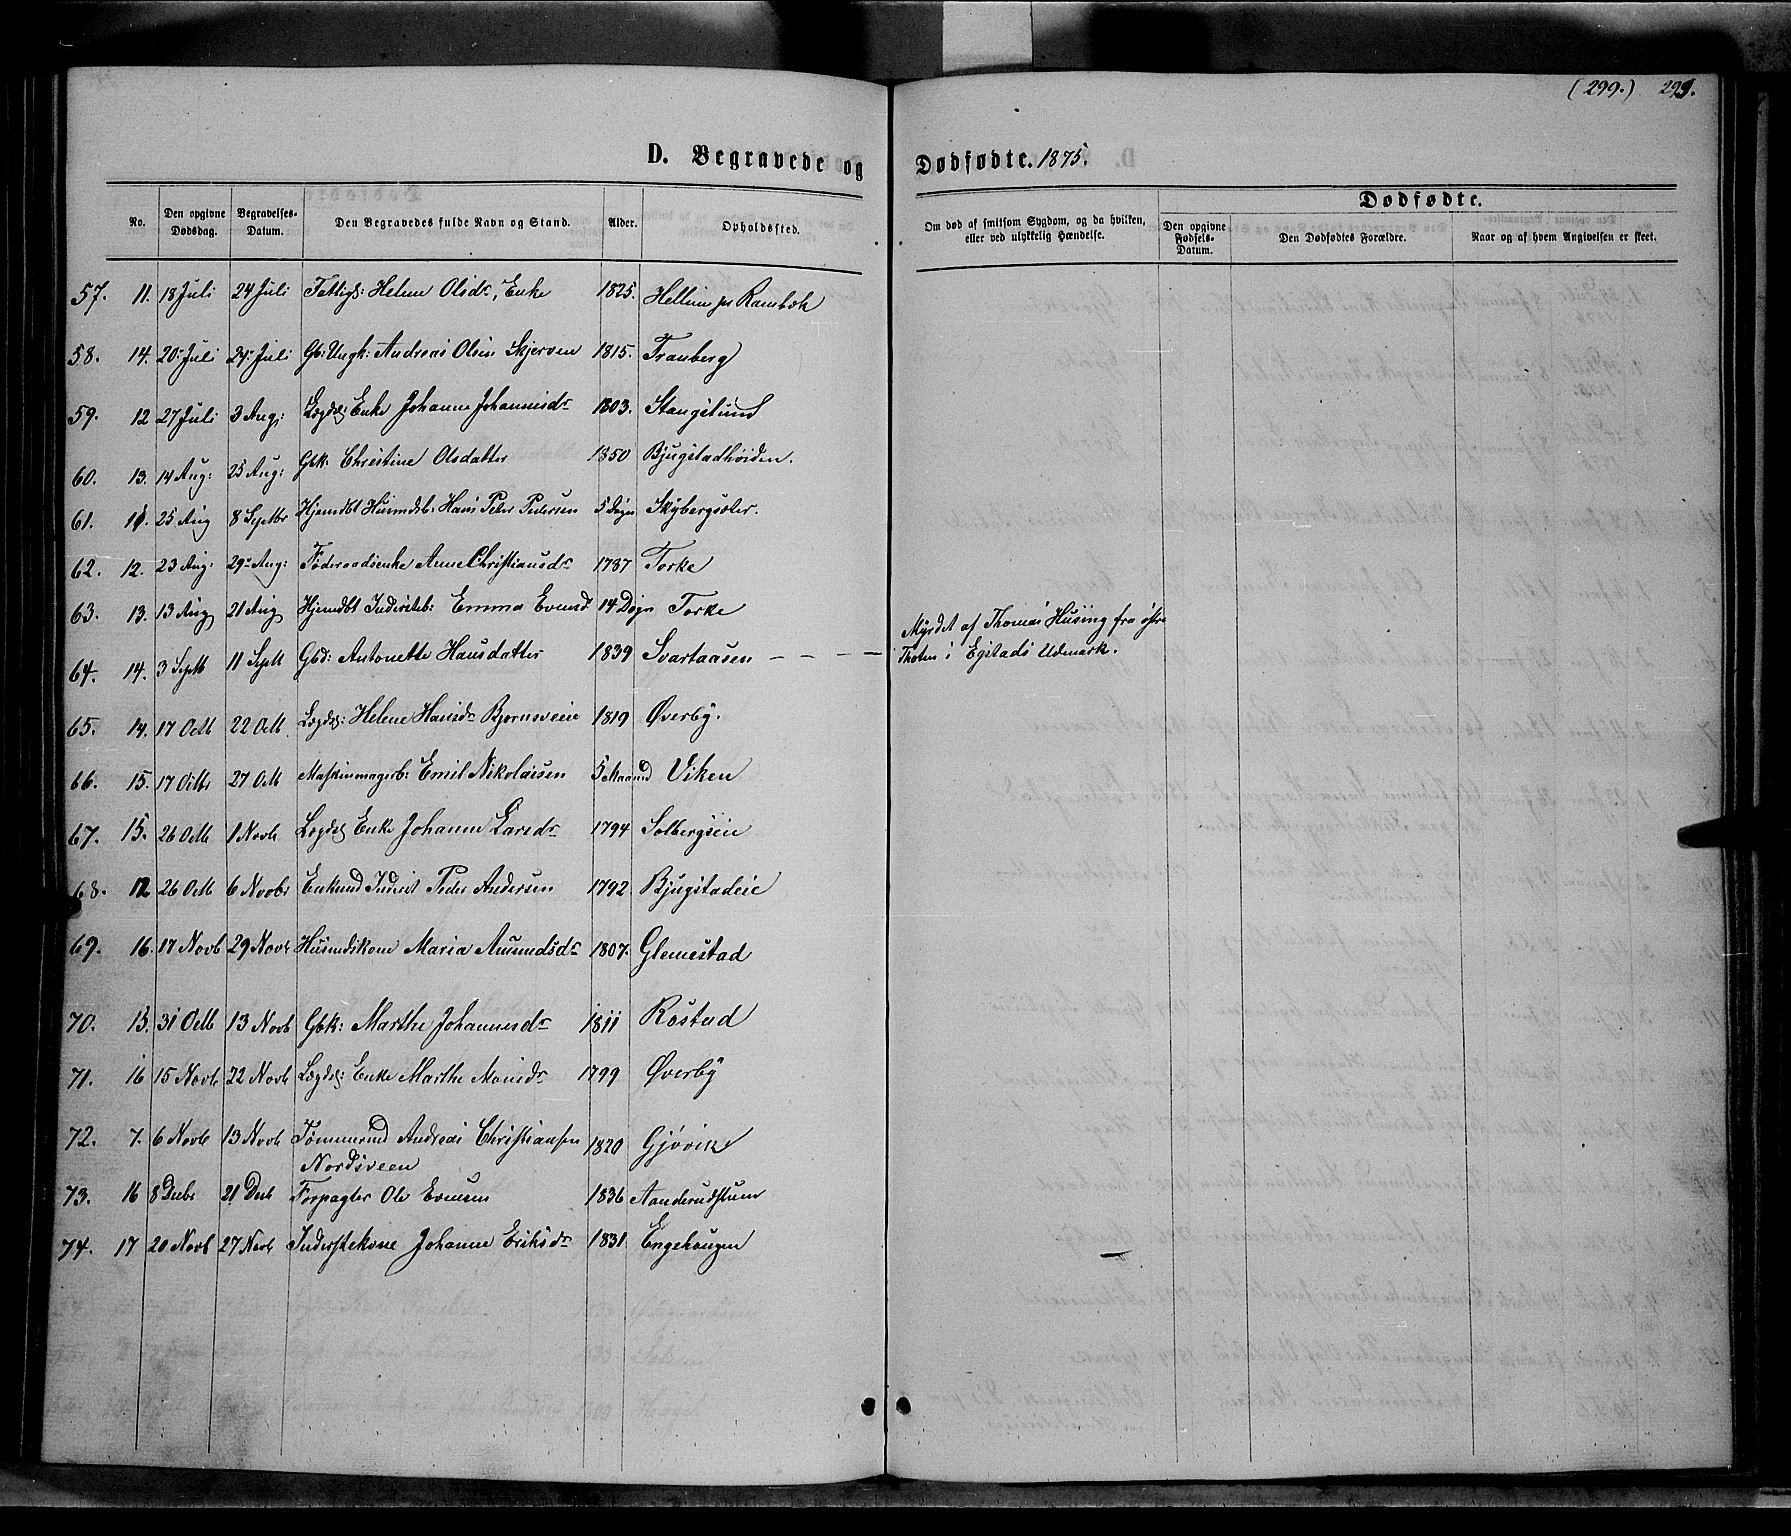 (299.) 299.
D. Begravede og Dødfødte. 1875.
No.
Den opgivne Dødsdag.
Begravelses-Datum.
Den Begravedes fulde Navn og Stand.
Alder.
Opholdssted.
Om død af smitsom Sygdom, og da hvilken, eller ved ulykkelig Hændelse.
Dødfødte.
Den opgivne Fødsels-Datum.
Den Dødfødtes Forældre.
Naar og af hvem Angivelsen er skeet.
57. 11. 18 Juli 24 Juli Fattigl: Helene Olsdr, Enke 1825. Hellum pr Rambæk
58. 14. 20 Juli 24 Juli Gb: Ungk: Andreas Olsen Skjerven 1815. Tranberg
59. 12 27 Juli 3 Aug: Lægdsl: Enke Johanne Johannesdr 1803. Stangslund
60. 13. 14 Aug: 25 Aug: Gbk: Christine Olsdatter 1850 Bjugstadhøiden.
61. 11. 25 Aug 8 Septbr Hjemdbt Husmdsb: Hans Peter Pedersen 5 Døgn Skybergseter.
62. 12. 23 Aug: 29 Aug: Føderaadsenke Anne Christiansdr 1787 Torke
63. 13. 13 Aug 21 Aug Hjemdbt Inderstb: Emma Evensd 14 Døgn Torke
64. 14. 3 Septb 11 Septb Gbd: Antonette Hansdatter 1839 Svartaasen – – – – Myrdet af Thomas Husing fra østre
Thoten i Egstads Udmark.
65. 14. 17 Octb 22 Octb. Lægdsl: Helene Hansdr Bjørnsveie 1819 Øverby.
66. 15. 17 Octbr 27 Octb Maskinmagerb: Emil Nikolaisen 5 Maaned Viken
67. 15. 26 Octb 1 Novb Lægdsl Enke Johanne Larsdr 1794 Solbergseie
68. 12 26 Octb 6 Novbr Enkemd Inderst Peder Andersen 1792 Bjugstadeie
69. 16. 17 Novb 29 Novb Husmdskone Maria Amundsdr 1807. Glemestad
70. 13. 31 Octb 13 Novb Gbk: Marthe Johannesdr 1811 Røstad
71. 16 15 Novb 22 Novb Lægdsl: Enke Marthe Monsdr 1799 Øverby
72. 7. 6 Novb 13 Novb Tømmermd Andreas Christiansen 1820 Gjøvik
Nordsveen
73. 16 8 Decbr 21 Decb Forpagter Ole Evensen 1836 Aanderudstuen
74. 17 20 Novb 27 Novb Inderstekone Johanne Eriksdr 1831 Engehaugen